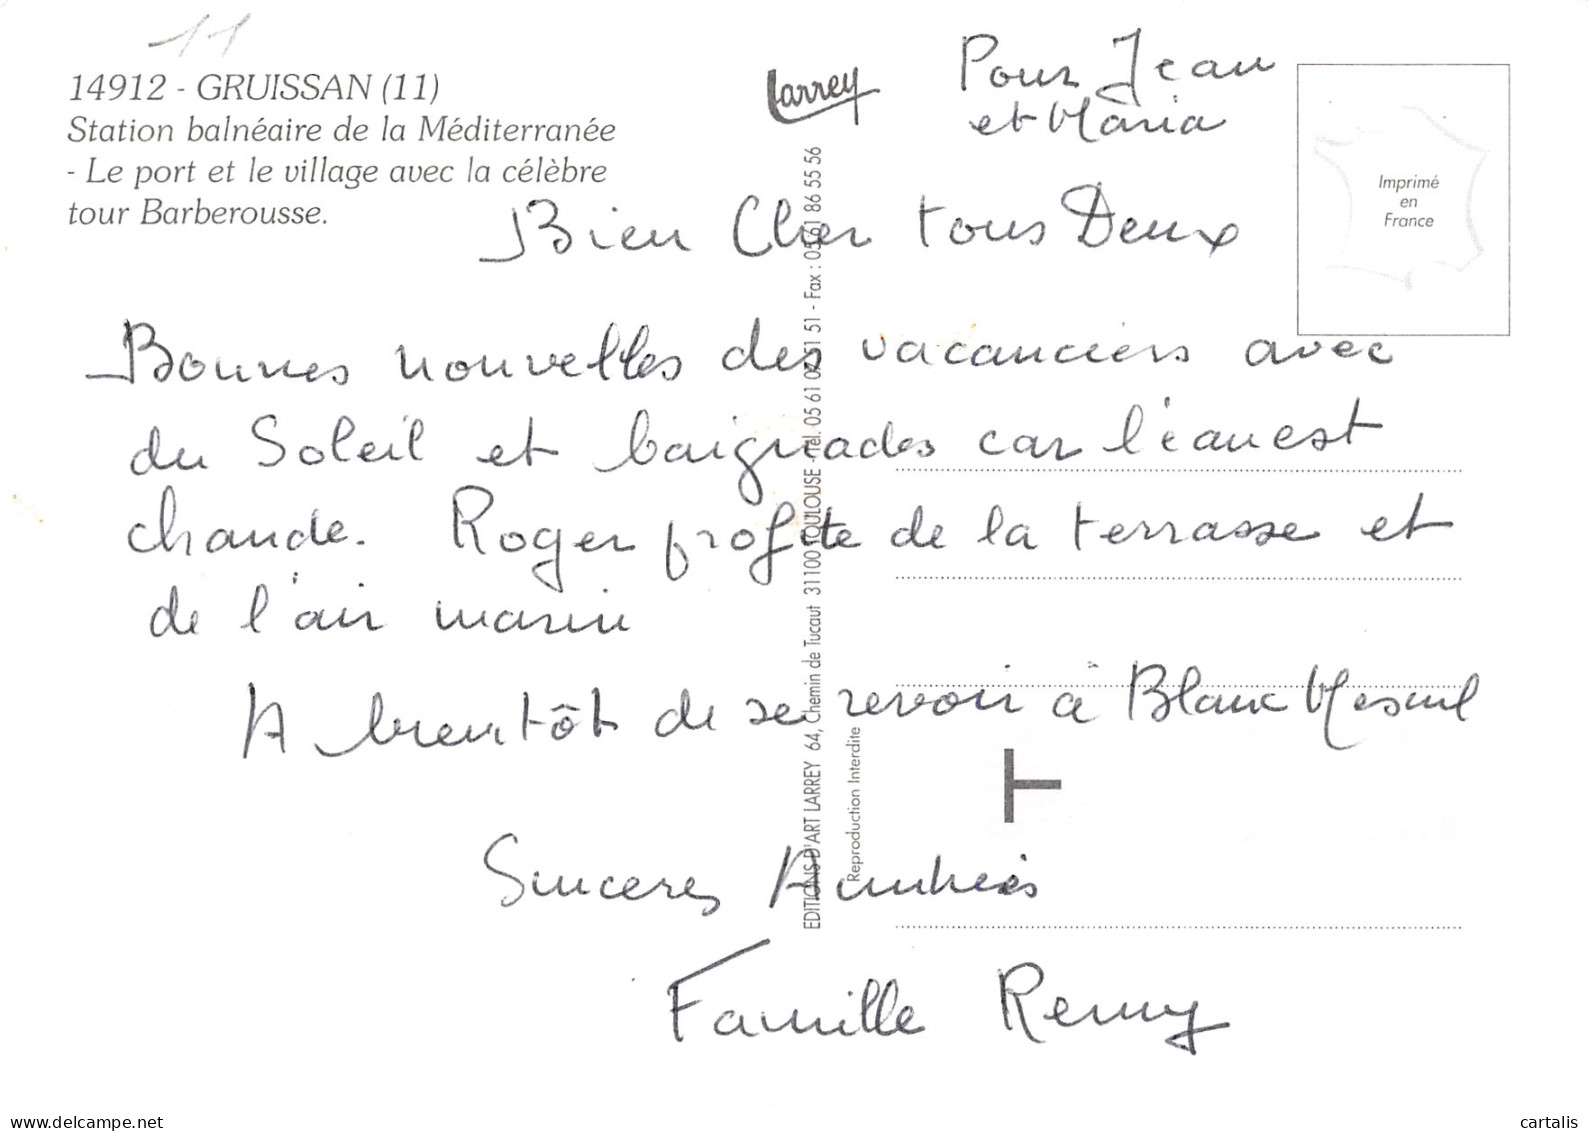 11
14912 - GRUISSAN (11)
Station balnéaire de la Méditerranée
- Le port et le village avec la célèbre
tour Barberousse.
Larrey
Pour Jean
et Maria
Imprimé
en
France
Bien Cher tous Deux
Bonnes nouvelles des vacanciers avec
du Soleil et baignades car l'eau est
chaude. Roger profite de la terrasse et
de l'air marin
A bientôt de se revoir à Blanc Mesnil
Sinceres Amitiés
Famille Remy
EDITIONS D'ART LARREY 64, Chemin de Tucaut 31100 TOULOUSE - Tél. 05 61 07 51 51 - Fax : 05 61 86 55 56
Reproduction Interdite
delcampe.net
cartalis